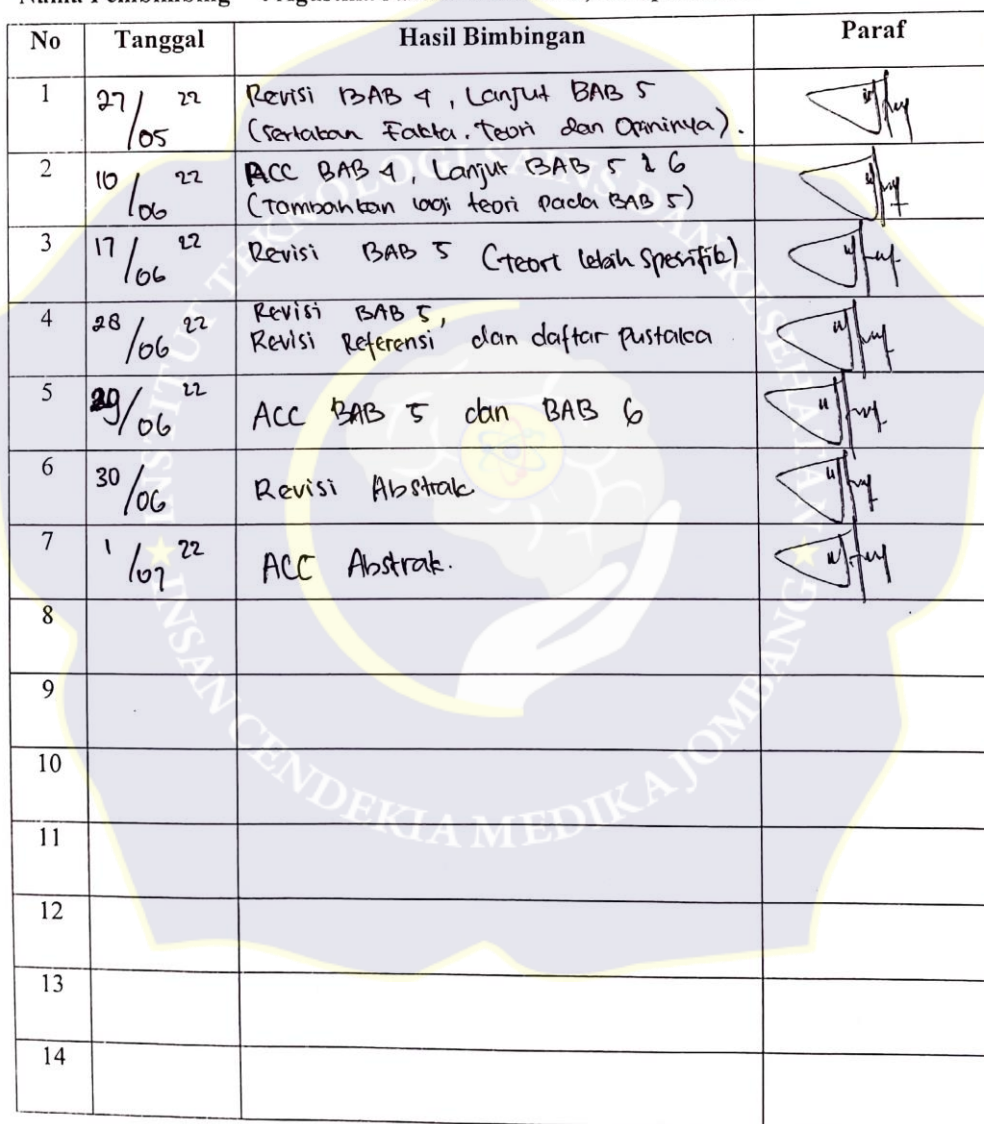 Nama Pembimbing
No Tanggal Hasil Bimbingan Paraf
1 27/05 22 Revisi BAB 4, Lanjut BAB 5
(Sertakan Fakta. Teori dan Opininya).
2 10/06 22 ACC BAB 4, Lanjut BAB 5 & 6
(Tambahkan lagi teori pada BAB 5)
3 17/06 22 Revisi BAB 5 (Teori lebih Spesifik)
4 28/06 22 Revisi BAB 5,
Revisi Referensi dan daftar pustaka
5 29/06 22 ACC BAB 5 dan BAB 6
6 30/06 Revisi Abstrak
7 1/07 22 ACC Abstrak.
8
9
10
11
12
13
14
INSTITUT TEKNOLOGI SAINS DAN KESEHATAN
INSAN CENDEKIA MEDIKA JOMBANG